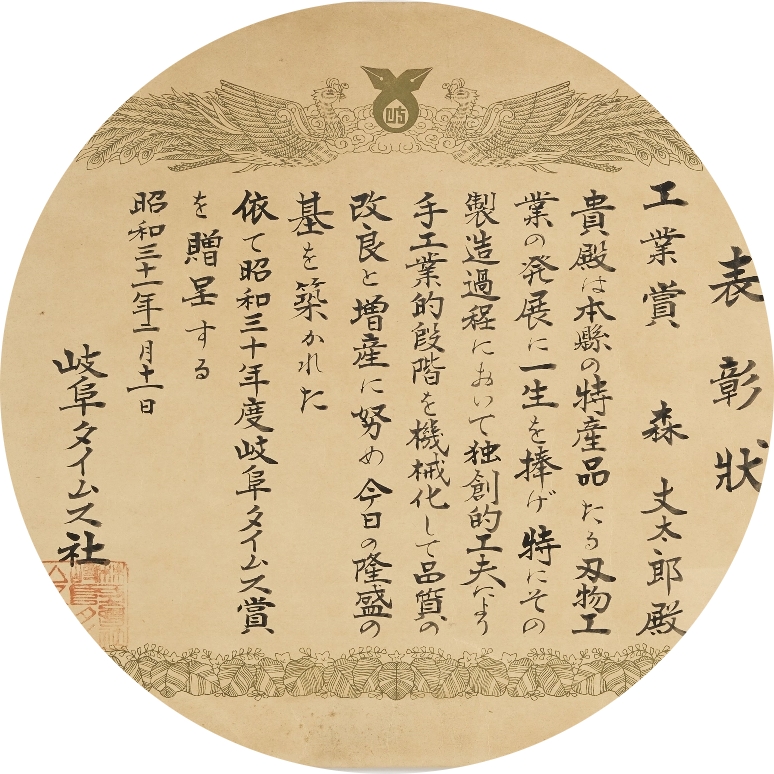 表彰状
工業賞　森丈太郎殿
貴殿は本縣の特産品たる刃物工
業の発展に一生を捧げ特にその
製造過程において独創的工夫により
手工業的段階を機械化して品質の
改良と増産に努め今日の隆盛の
基を築かれた
依て昭和三十年度岐阜タイムス賞
を贈呈する
昭和三十一年二月十一日
岐阜タイムス社